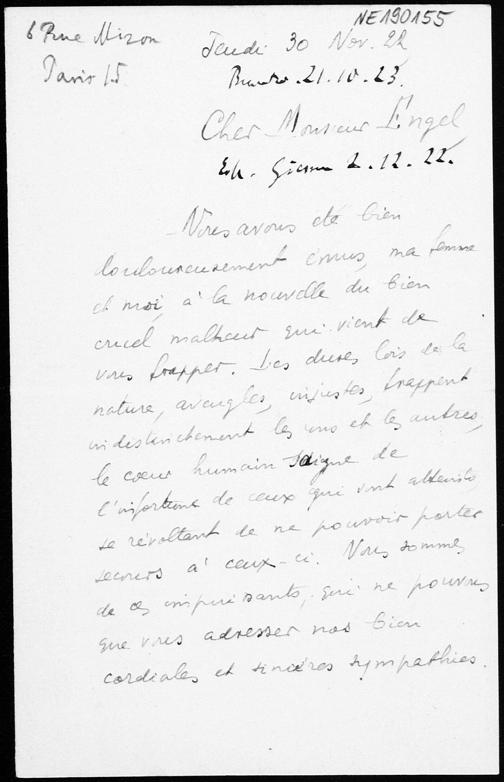 NE190155
6 Rue Mizon
Paris 15
Jeudi 30 Nov. 22
21.10.23.
Cher Monsieur Engel
2.12.22.
Nous avons été bien
douloureusement émus, ma femme
et moi, à la nouvelle du bien
cruel malheur qui vient de
vous frapper. Les dures lois de la
nature, aveugles, injustes, frappent
indistinctement les uns et les autres,
le cœur humain saigne de
l'infortune de ceux qui sont atteints,
se révoltant de ne pouvoir porter
secours à ceux-ci. Nous sommes
de ces impuissants, qui ne pouvons
que vous adresser nos bien
cordiales et sincères sympathies.